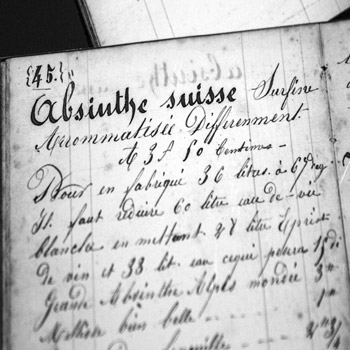 {45.}
Absinthe suisse Surfine
Arrommatisée Differenment
A 3f 50 Centimes -
Pour en fabriqué 36 litres à 67 deg
Il faut reduire 60 litre eau de-vie
blanche en mettant 28 litre Esprit
de vin et 38 lit. eau ce qui pesera
Grande Absinthe Alpes mondée 3
Mellisse bien belle